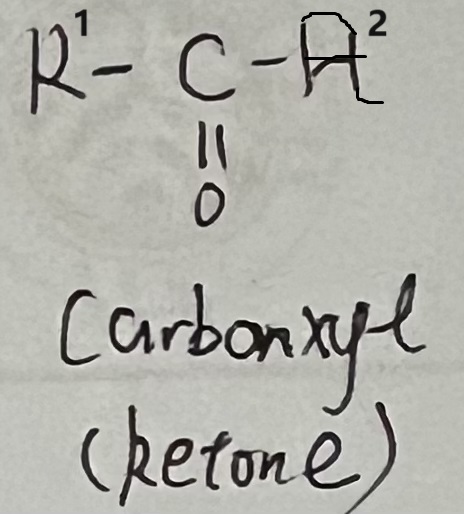 R¹ – C – R²
||
O
Carbonxyl
(ketone)